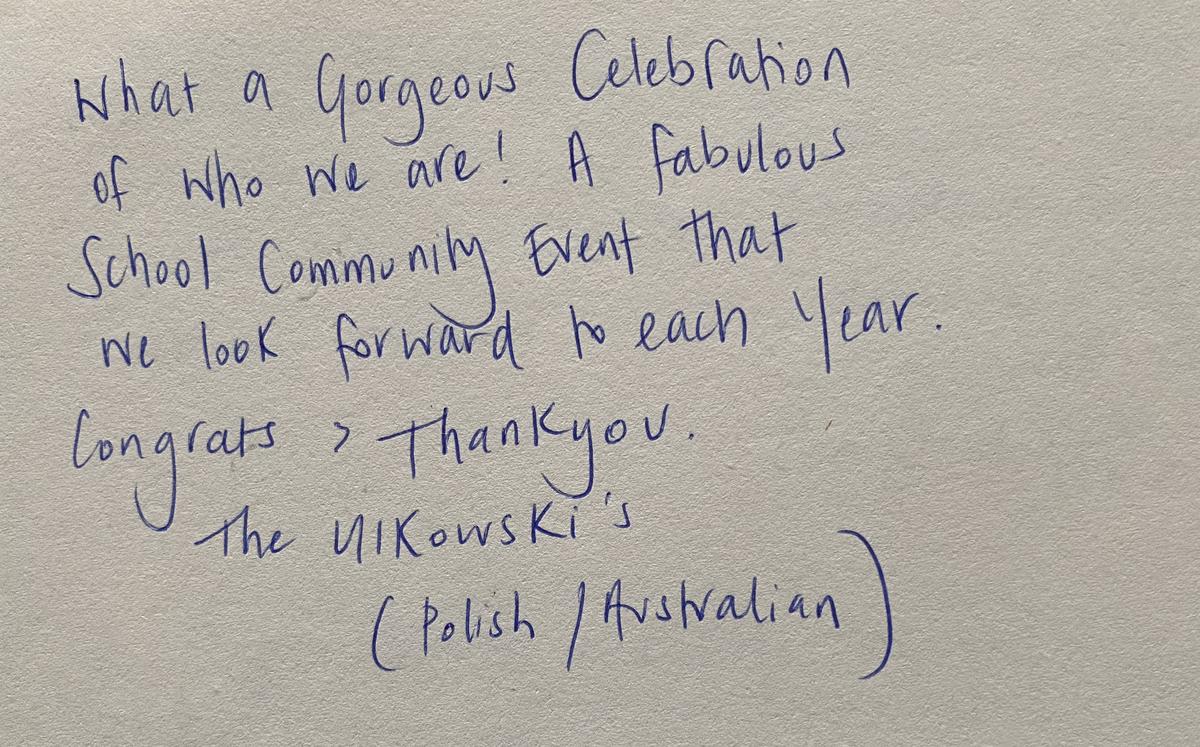 What a Gorgeous Celebration
of who we are! A fabulous
School Community Event that
we look forward to each Year.
Congrats > Thankyou.
The
(Polish / Australian)